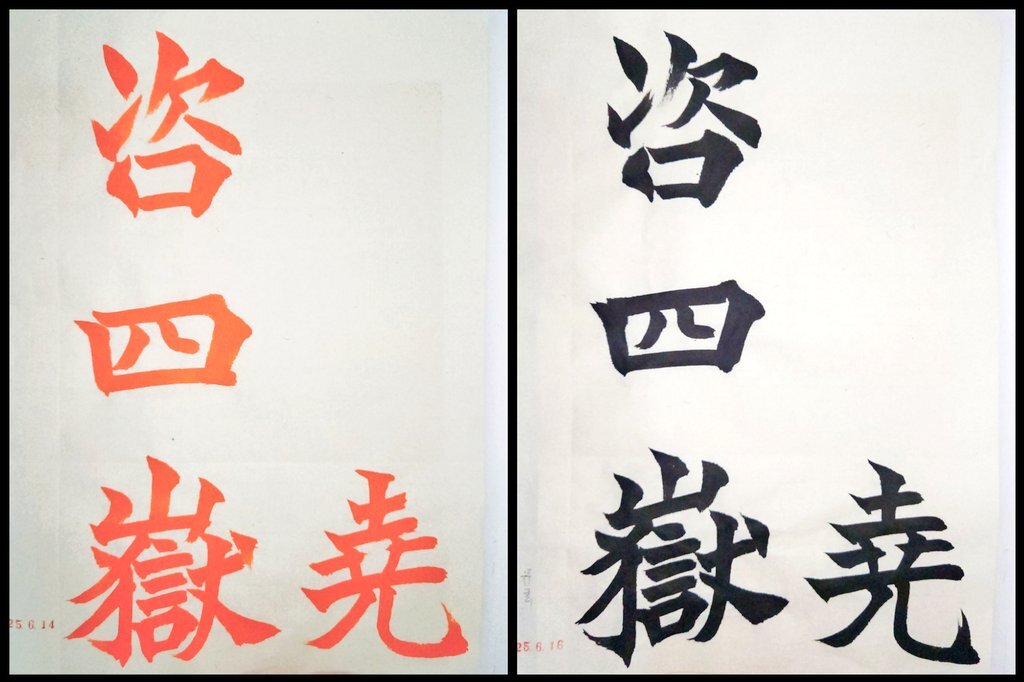 堯
咨四嶽
25.6.14
堯
咨四嶽
25.6.16